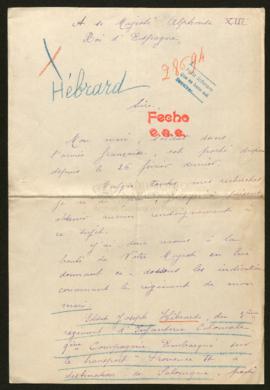 A Sa Majesté Alphonse XIII
Roi d'Espagne,
28594
Hébrard
Sire,
Fecho
Mon mari, soldat dans
l'armée française, est porté disparu
depuis le 26 février dernier.
Malgré toutes mes recherches
je
obtenir aucun renseignement à
ce sujet.
J'ai donc recours à la
bonté de Votre Majesté en lui
donnant ci-dessous les indications
concernant le régiment de mon
mari:
Joseph Hébrard, du 3ème
régiment d'Infanterie Coloniale
9ème Compagnie Embarqué sur
le transport "Provence II" à
destination de Salonique, parti